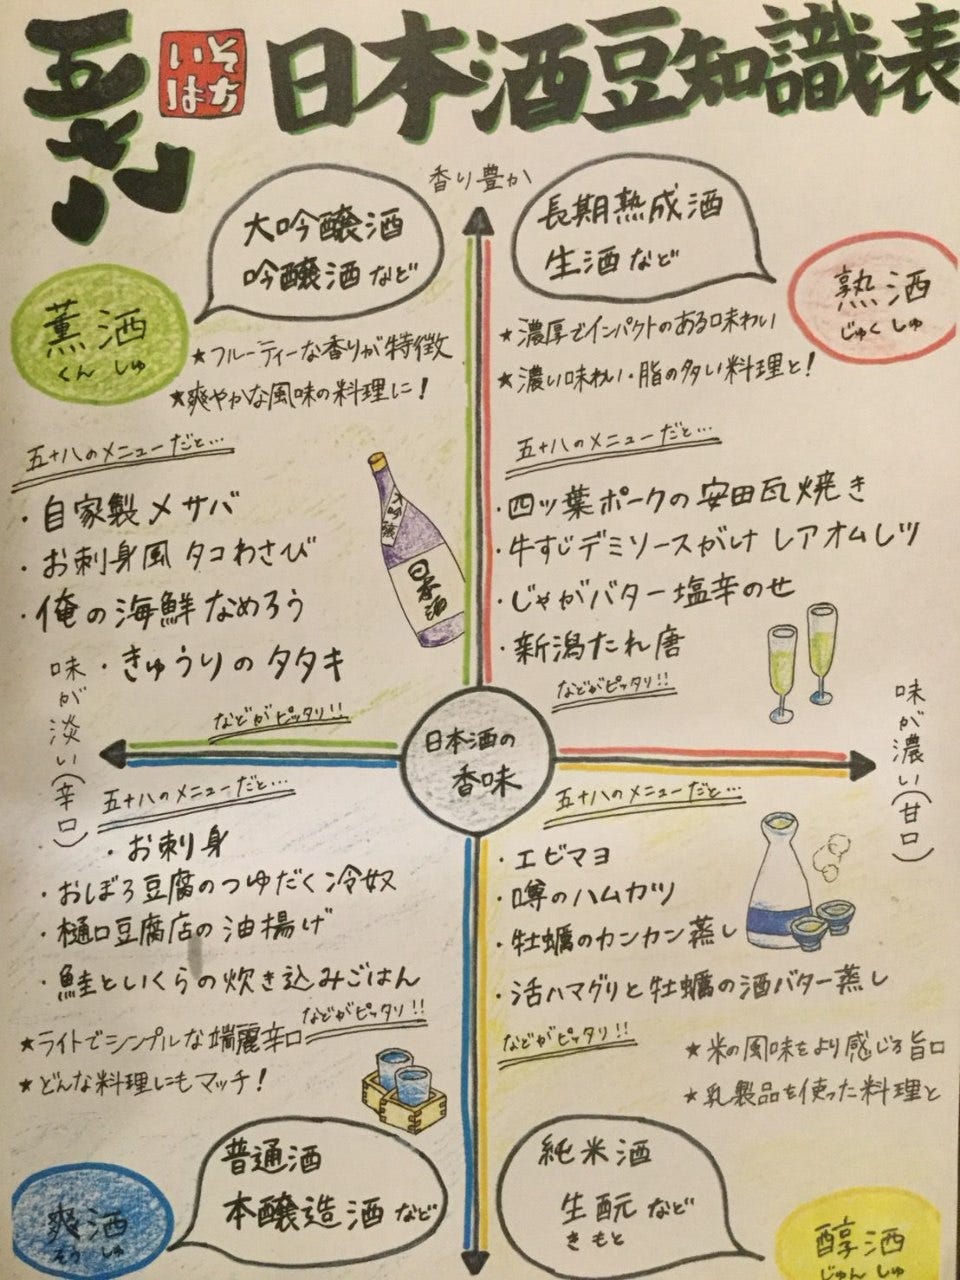 五十八
いそ
はち
日本酒豆知識表
香り豊か
大吟醸酒
吟醸酒など
薫酒
くんしゅ
★フルーティーな香りが特徴
★爽やかな風味の料理に!
五十八のメニューだと…
・自家製〆サバ
・お刺身風タコわさび
・俺の海鮮なめろう
・きゅうりのタタキ
などがピッタリ!!
大吟醸
日本酒
長期熟成酒
生酒など
熟酒
じゅくしゅ
★濃厚でインパクトのある味わい
★濃い味わい・脂の多い料理と!
五十八のメニューだと…
・四ツ葉ポークの安田瓦焼き
・牛すじデミソースがけレアオムレツ
・じゃがバター塩辛のせ
・新潟たれ唐
などがピッタリ!!
味が淡い(辛口)
日本酒の
香味
味が濃い(甘口)
五十八のメニューだと…
・お刺身
・おぼろ豆腐のつゆだく冷奴
・樋口豆腐店の油揚げ
・鮭といくらの炊き込みごはん
などがピッタリ!!
★ライトでシンプルな端麗辛口
★どんな料理にもマッチ!
普通酒
本醸造酒など
爽酒
そうしゅ
五十八のメニューだと…
・エビマヨ
・噂のハムカツ
・牡蠣のカンカン蒸し
・活ハマグリと牡蠣の酒バター蒸し
などがピッタリ!!
★米の風味をより感じる旨口
★乳製品を使った料理と
純米酒
生酛など
きもと
醇酒
じゅんしゅ